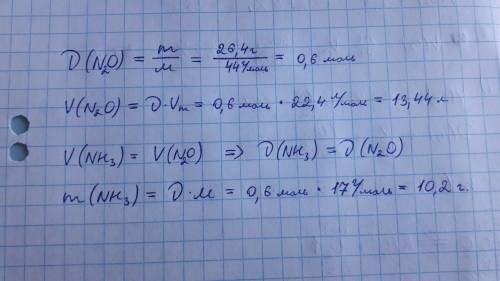 D(N₂O) = m/M = 26,4г/44г/моль = 0,6 моль
V(N₂O) = D·Vₘ = 0,6 моль · 22,4 л/моль = 13,44 л
V(NH₃) = V(N₂O) ⇒ D(NH₃) = D(N₂O)
m(NH₃) = D·M = 0,6 моль · 17 г/моль = 10,2 г.